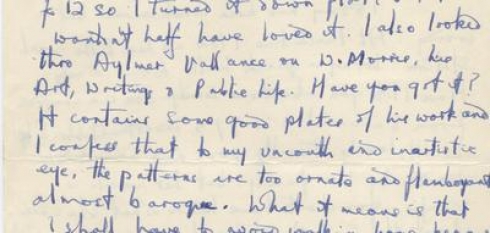 £12 so I turned it down
wouldn't half have loved it. I also looked
thro Aylmer Vallance on W. Morris, his
Art, Writings & Public Life. Have you got it?
It contains some good plates of his work and
I confess that to my uncouth and inartistic
eye, the patterns are too ornate and flamboyant
almost baroque. What it means is that
I shall have to avoid